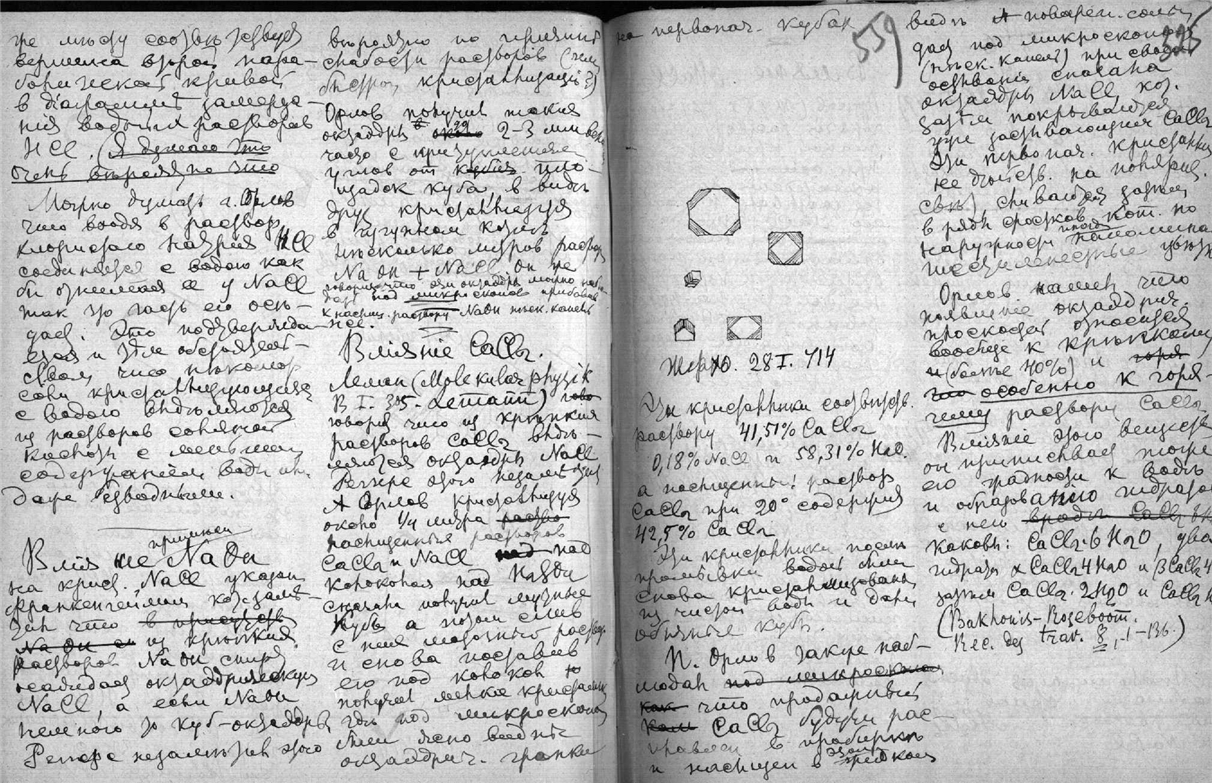 же месту соответствует
вершина второй пара-
болической кривой
в диаграмме замерза-
ния водных растворов
HCl. (Я думаю это
очень вероятно это
Можно думать г. Орлов
что вводя в раствор
хлористаго натрия HCl
соединяется с водою как
бы отнимая ее у NaCl
так что часть его осе-
дает. Это подтвержда-
ется и тем обстоятель-
ством, что некотор.
соли кристаллизующияся
с водою выделяются
из растворов соляной
кислоты с меньшим
содержанием воды или
даже безводными.
примеси
Влияние NaOH
на крист. NaCl указал
Франкенгейм
зав что в присутств
NaOH из крепких
растворов NaOH спирт
осаждает октаэдрическую
NaCl, а если NaOH
немного то куб-октаэдры
Ретгерс незаметил этого
вероятно по причине
слабости растворов (или
быстрой кристаллизации?)
Орлов получил такие
октаэдры в 2-3 мм велич
часто с
углов от кубич. пло-
щадок куба в виде
друз кристаллизуя
в чугунном котле
несколько литров раствора
NaOH + NaCl. Он же
говорит что эти октаэдры можно наблю-
дать под микроскопом прибавив
к насыщ. раствору NaOH неск. капель
HCl.
Влияние CaCl2.
Леман (Molekularphysik
B I. 305-Lehmann)
говорит что из крепких
растворов CaCl2 выде-
ляются октаэдры NaCl
Ретгерс этого незаметил
А Орлов кристаллизуя
около 1/4 литра раство
насыщенных растворов
CaCl2 и NaCl над под
колоколом над NaOH
сначала получил мутные
кубы а потом слив
с них маточный раствор
и снова поставив
его под колокол то
получил мелкие кристаллики
где под микроскопом
были ясно видны
октаэдрич. гранки
на первонач. кубах
559
Жерхо. 28 I. 714
Эти кристаллики соответств.
раствору 41,51% CaCl2
0,18% NaCl и 58,31% H2O.
а насыщенный раствор
CaCl2 при 20° содержит
42,5% CaCl2
Эти кристаллики после
промывки водой были
снова кристаллизованы
из чистой воды и дали
обычные кубы.
П. Орлов также наб-
людал под микроскопом
как что продажный
CaCl2 будучи рас-
плавлен в пробирке
и насыщен в этом жидком
виде поварен. солью
дает под микроскопом
(неск. капель) при
застывании сначала
октаэдры NaCl кот.
затем покрываются
уже застывающим CaCl2
Эти первонач. кристаллики
не действ. на поляриз.
свет) сливаются затем
в ряды сростков кот. по
наружности напомина
шестилепестные цветы
Орлов нашел что
появление октаэдрия.
происходит относится
вообще к крепкому
(более 40%) и горя
что особенно к горя-
чему раствору CaCl2
Влияние этого вещества
он приписывает тоже
его жадности к воде
и образованию гидратов
с ней вроде CaCl2
каковы: CaCl2·6H2O, два
гидрата αCaCl2 4H2O и βCaCl2 4
затем CaCl2·2H2O и CaCl2 H
(Bakhouis-Roseboom.
Rec. des trav. 8 1.-136.)